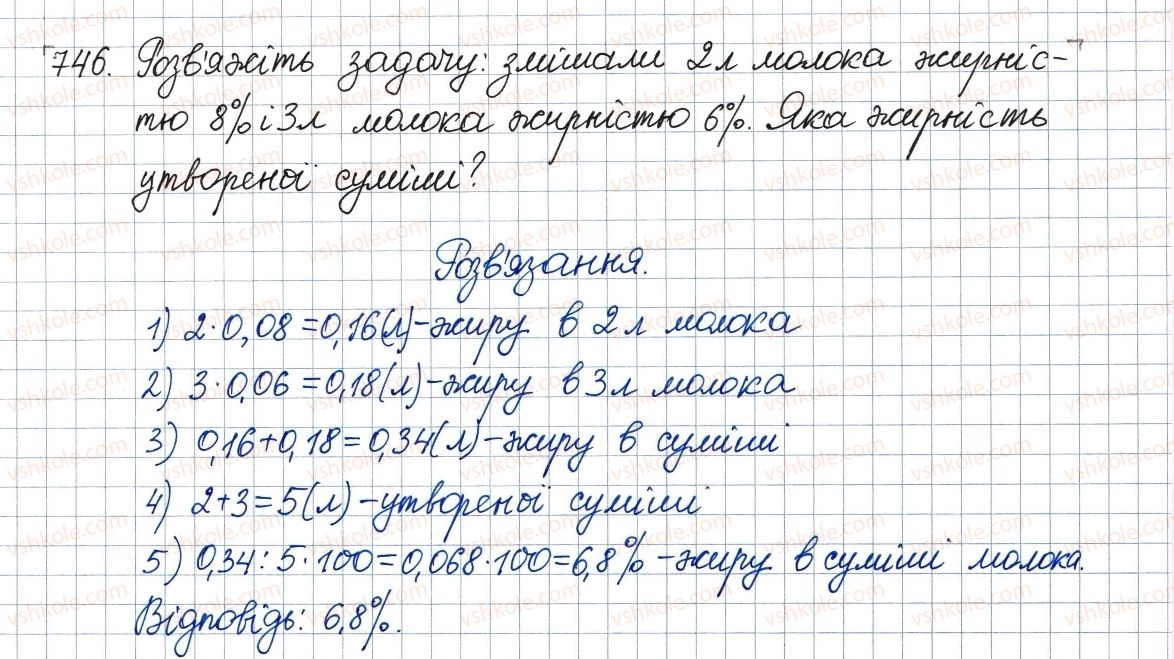 746. Розв'яжіть задачу: змішали 2 л молока жирніс-
тю 8% і 3 л молока жирністю 6%. Яка жирність
утвореної суміші?
Розв'язання.
1) 2·0,08=0,16(л)-жиру в 2 л молока
2) 3·0,06=0,18(л)-жиру в 3 л молока
3) 0,16+0,18=0,34(л)-жиру в суміші
4) 2+3=5(л)-утвореної суміші
5) 0,34:5·100=0,068·100=6,8%-жиру в суміші молока.
Відповідь: 6,8%.
vshkole.com